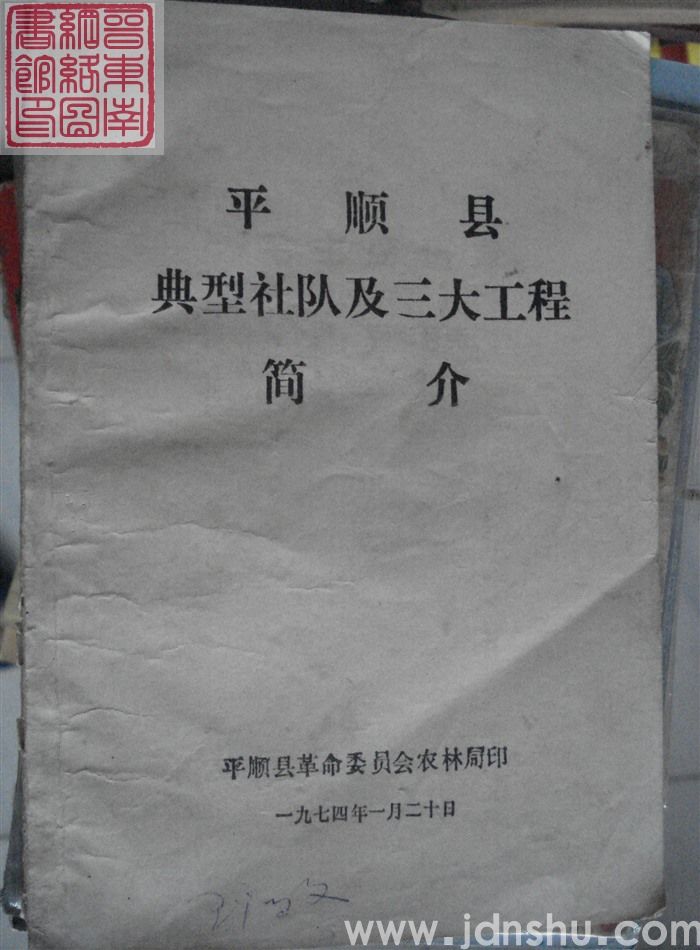 晋東南
網絡圖
書館印
平顺县
典型社队及三大工程
简介
平顺县革命委员会农林局印
一九七四年一月二十日
www.jdnshu.com